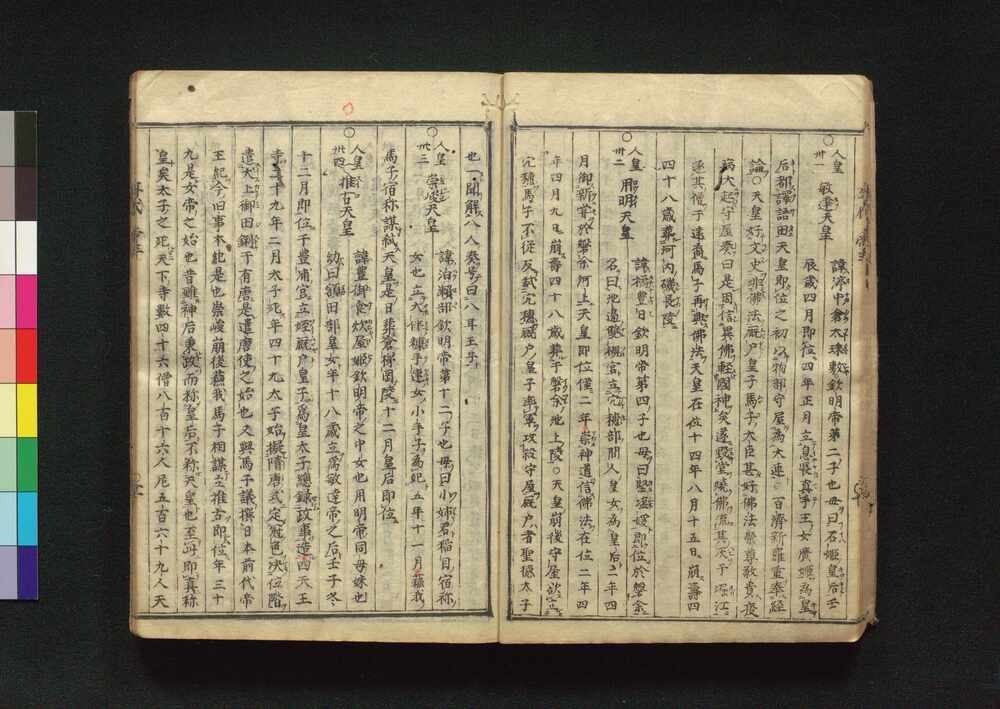 ○人皇卅一 敏達天皇 諱渟中倉太珠敷欽明帝第二子也母曰石姫皇后壬
辰歳四月即位四年正月立息長真手王女廣姫為皇
后都譯語田天皇即位之初以物部守屋為大連百濟新羅重奉経
論○天皇好文史非佛法厩戸皇子馬子大臣甚好佛法崇尊敬貴疫
病大起守屋奏曰是因信異佛軽國神矣遂毀堂焼佛流其灰于堀江
遂其僧于遠裔馬子再興佛法天皇在位十四年八月十五日崩壽四
十八歳葬河内磯長陵
○人皇卅二 用明天皇 諱橘豊日欽明帝第四子也母曰堅塩媛即位於磐余
名曰池邉雙槻宮立穴穂部間人皇女為皇后二年四
月御新嘗於磐余河上天皇即位僅二年崇神道信佛法在位二年四
年四月九日崩壽四十八歳葬于磐余池上陵○天皇崩後守屋欲立
穴穂馬子不従反弑穴穂厩戸皇子率軍攻殺守屋厩戸者聖徳太子
也一聞解八人奏号曰八耳王子
○人皇卅三 崇峻天皇 諱泊瀬部欽明帝第十二子也母曰小姉君稲目宿祢
女也立大伴糠手連女小手子為妃五年十一月蘓我
馬子宿祢謀弑天皇是日葬倉梯岡陵十二月皇后即位
○人皇卅四 推古天皇 諱豊御食炊屋姫欽明帝之中女也用明帝同母妹也
幼曰額田部皇女年十八歳立為敏達帝之后壬子冬
十二月即位于豊浦宮立姪厩戸皇子為皇太子總録政事造四天王
寺二十九年二月太子死年四十九太子始擬隋唐式定冠色决位階
遣犬上御田鍬于有唐是遣唐使之始也又與馬子議撰日本前代帝
王紀今旧事本紀是也崇峻崩後蘓我馬子相謀立推古即位年三十
九是女帝之始也昔雖神后秉政而称皇后不称天皇也至此即真称
皇矣太子之死天下寺数四十六僧八百十六人尼五百六十九人天